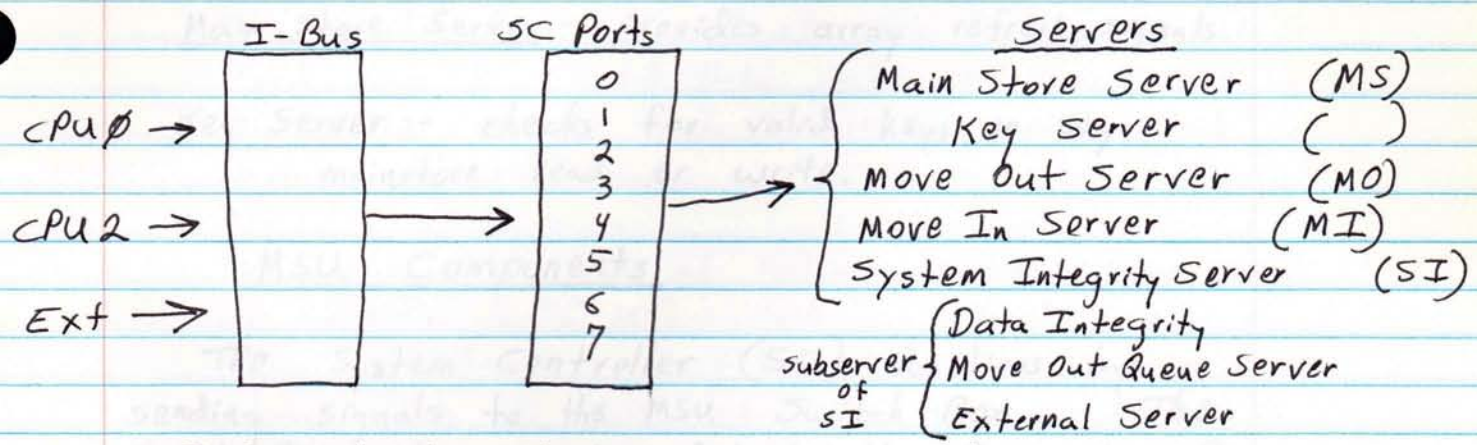 I-Bus
CPUØ →
CPU2 →
Ext →
SC Ports
0
1
2
3
4
5
6
7
Servers
Main Store Server (MS)
Key Server ( )
Move Out Server (MO)
Move In Server (MI)
System Integrity Server (SI)
subserver
of
SI
Data Integrity
Move Out Queue Server
External Server
MSU Components